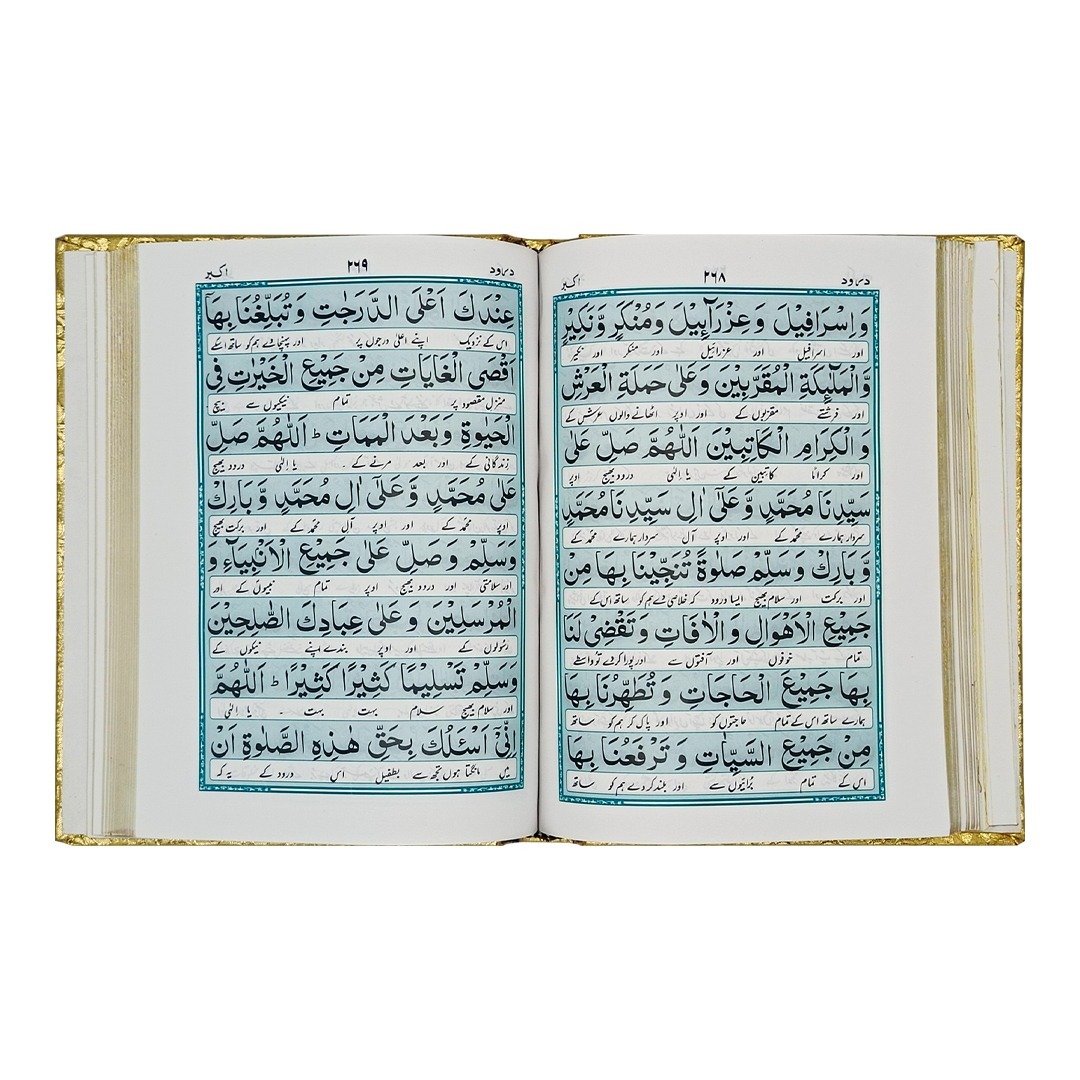 درود ٢٦٨ اکبر
وَاِسْرَافِيْلَ وَعِزْرَآئِيْلَ وَمُنْكَرٍ وَّنَكِيْرٍ
اور اسرافیل اور عزرائیل اور منکر اور نکیر
وَّالْمَلٰٓئِكَةِ الْمُقَرَّبِيْنَ وَعَلٰى حَمَلَةِ الْعَرْشِ
اور فرشتے مقربوں کے اور اوپر اٹھانے والوں عرش کے
وَالْكِرَامِ الْكَاتِبِيْنَ اَللّٰهُمَّ صَلِّ عَلٰى
اور کراماً کاتبین کے یا الٰہی درود بھیج اوپر
سَيِّدِنَا مُحَمَّدٍ وَّعَلٰٓى اٰلِ سَيِّدِنَا مُحَمَّدٍ
سردار ہمارے محمدؐ کے اور اوپر آل سردار ہمارے محمدؐ کے
وَّبَارِكْ وَسَلِّمْ صَلٰوةً تُنَجِّيْنَا بِهَا مِنْ
اور برکت اور سلام بھیج ایسا درود کہ خلاصی دے ہم کو ساتھ اس کے
جَمِيْعِ الْاَهْوَالِ وَالْاٰفَاتِ وَتَقْضِىْ لَنَا
تمام خوفوں اور آفتوں سے اور پورا کر دے تو واسطے
بِهَا جَمِيْعَ الْحَاجَاتِ وَتُطَهِّرُنَا بِهَا
ہمارے ساتھ اس کے تمام حاجتوں کو اور پاک کر ہم کو ساتھ
مِنْ جَمِيْعِ السَّيِّاٰتِ وَتَرْفَعُنَا بِهَا
اس کے تمام برائیوں سے اور بلند کر دے ہم کو ساتھ
درود ٢٦٩ اکبر
عِنْدَكَ اَعْلَى الدَّرَجٰتِ وَتُبَلِّغُنَا بِهَا
اس کے نزدیک اپنے اعلیٰ درجوں پر اور پہنچا دے ہم کو ساتھ اسکے
اَقْصَى الْغَايَاتِ مِنْ جَمِيْعِ الْخَيْرٰتِ فِى
منزل مقصود پر تمام نیکیوں سے بیچ
الْحَيٰوةِ وَبَعْدَ الْمَمَاتِ ط اَللّٰهُمَّ صَلِّ
زندگانی کے اور بعد مرنے کے ۔ یا الٰہی درود بھیج
عَلٰى مُحَمَّدٍ وَّعَلٰٓى اٰلِ مُحَمَّدٍ وَّبَارِكْ
اوپر محمدؐ کے اور اوپر آل محمدؐ کے اور برکت بھیج
وَسَلِّمْ وَصَلِّ عَلٰى جَمِيْعِ الْاَنْبِيَآءِ وَ
اور سلامتی اور درود بھیج اوپر تمام نبیوں کے اور
الْمُرْسَلِيْنَ وَعَلٰى عِبَادِكَ الصّٰلِحِيْنَ
رسولوں کے اور اوپر بندے اپنے نیکوں کے
وَسَلِّمْ تَسْلِيْمًا كَثِيْرًا كَثِيْرًا ط اَللّٰهُمَّ
اور سلام بھیج سلام بہت بہت ۔ یا الٰہی
اِنِّىْ اَسْئَلُكَ بِحَقِّ هٰذِهِ الصَّلٰوةِ اَنْ
میں مانگتا ہوں تجھ سے بطفیل اس درود کے یہ کہ